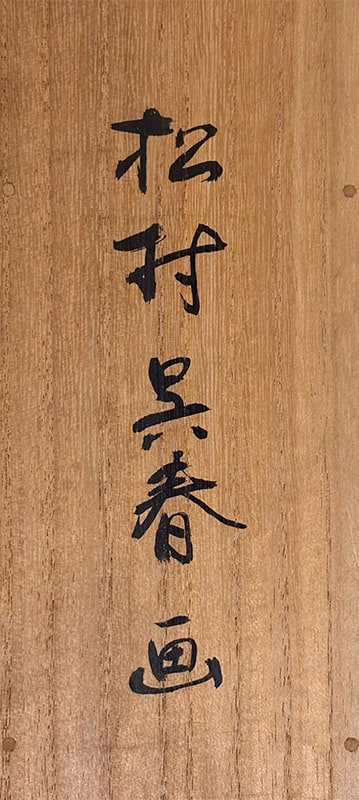 松村呉春画